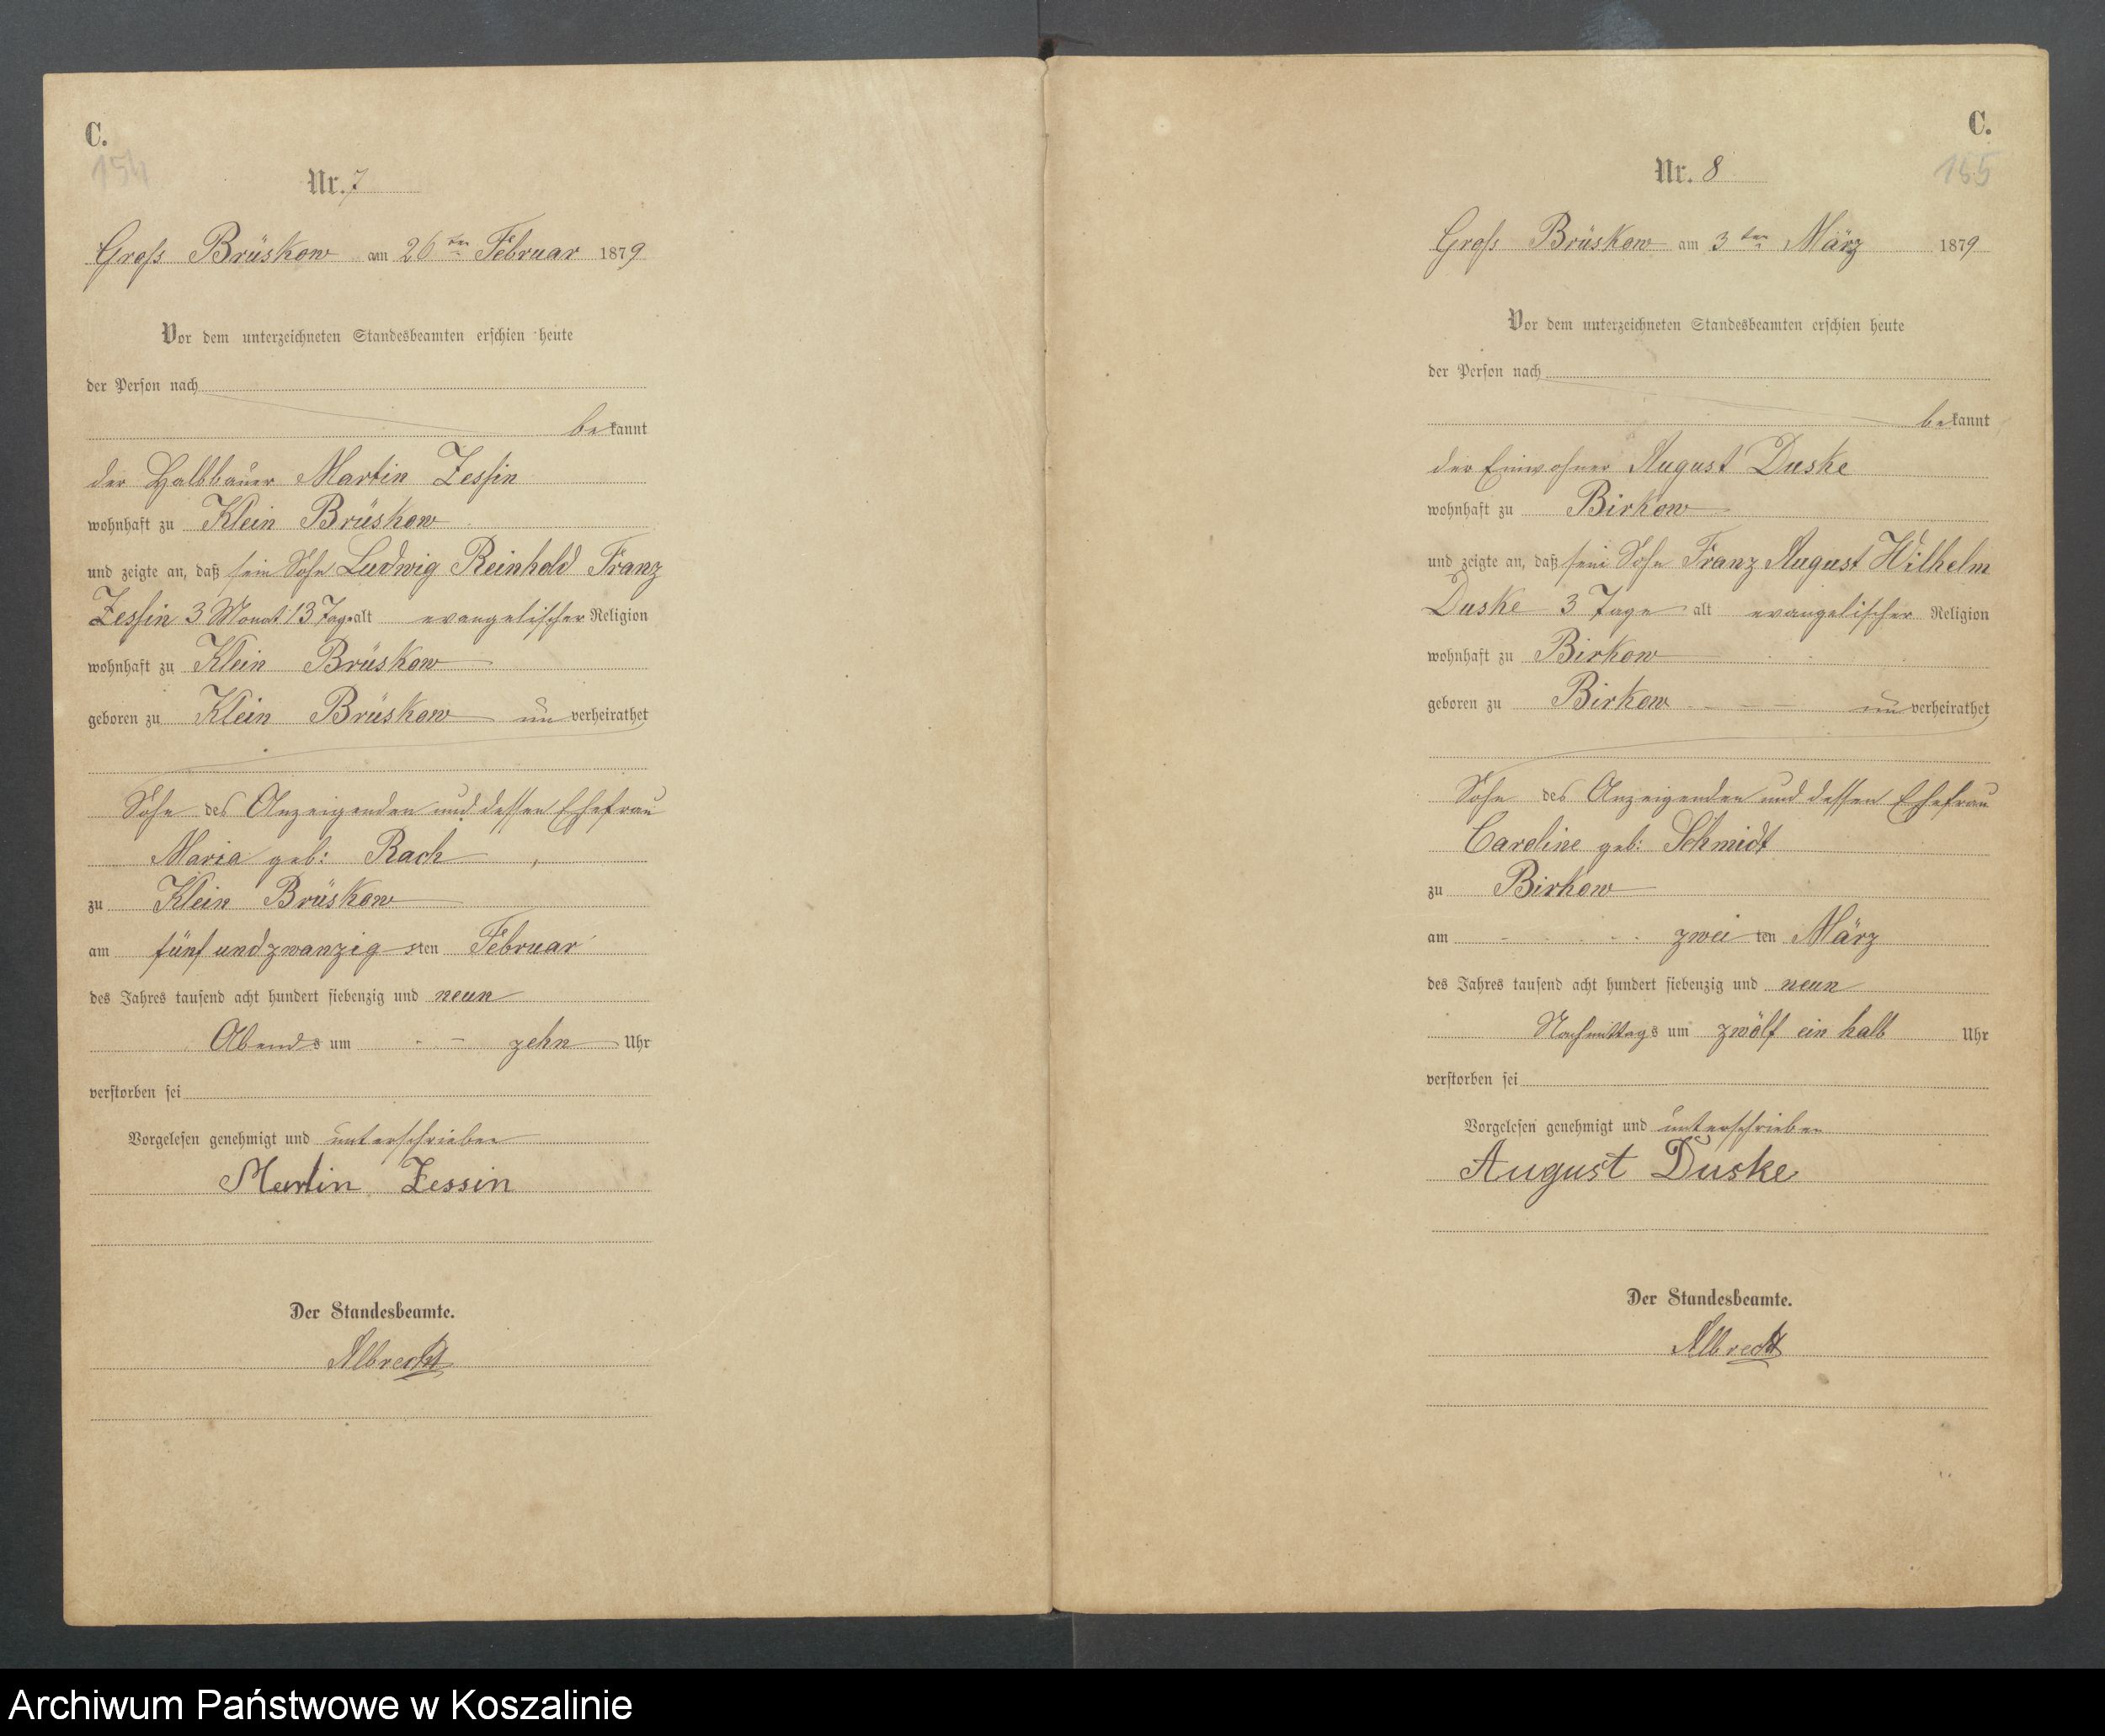 C.
154
Nr. 7
Groß Brüskow am 26ten Februar 1879
Vor dem unterzeichneten Standesbeamten erschien heute
der Person nach
bekannt
der Halbbauer Martin Zessin
wohnhaft zu Klein Brüskow
und zeigte an, daß sein Sohn Ludwig Reinhold Franz
Zessin 3 Monat 13 Tage alt evangelischer Religion
wohnhaft zu Klein Brüskow
geboren zu Klein Brüskow unverheirathet
Sohn des Anzeigenden und dessen Ehefrau
Maria geb: Rach
zu Klein Brüskow
am fünfundzwanzigsten Februar
des Jahres tausend acht hundert siebenzig und neun
Abends um zehn Uhr
verstorben sei
Vorgelesen genehmigt und unterschrieben
Martin Zessin
Der Standesbeamte.
Albrecht
C.
155
Nr. 8
Groß Brüskow am 3ten März 1879
Vor dem unterzeichneten Standesbeamten erschien heute
der Person nach
bekannt
der Einwohner August Duske
wohnhaft zu Birkow
und zeigte an, daß sein Sohn Franz August Wilhelm
Duske 3 Tage alt evangelischer Religion
wohnhaft zu Birkow
geboren zu Birkow unverheirathet
Sohn des Anzeigenden und dessen Ehefrau
Caroline geb: Schmidt
zu Birkow
am zweiten März
des Jahres tausend acht hundert siebenzig und neun
Nachmittags um zwölf ein halb Uhr
verstorben sei
Vorgelesen genehmigt und unterschrieben
August Duske
Der Standesbeamte.
Albrecht
Archiwum Państwowe w Koszalinie